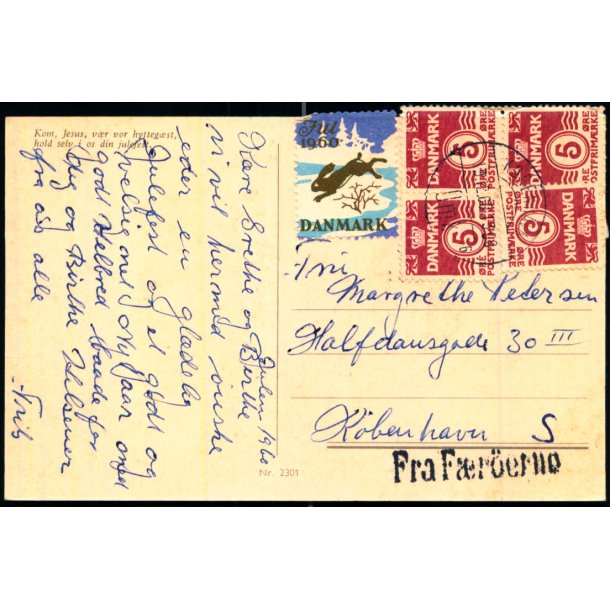 Kom, Jesus, vær vor hyttegæst,
hold selv i os din julefest.
Julen 1960
Kære Grethe og Birthe
Vi vil hermed ønske
eder en glædelig
Julefest og et godt og
velsignet Nytaar med
god Helbred baade for
dig og Birthe Hilsener
fra os alle
Nr. 2301
Jul
1960
DANMARK
DANMARK 5 ØRE POSTFRIMÆRKE
DANMARK 5 ØRE POSTFRIMÆRKE
DANMARK 5 ØRE POSTFRIMÆRKE
DANMARK 5 ØRE POSTFRIMÆRKE
Margrethe Pedersen
Halfdansgade 30 III
København S
Fra Færöerne